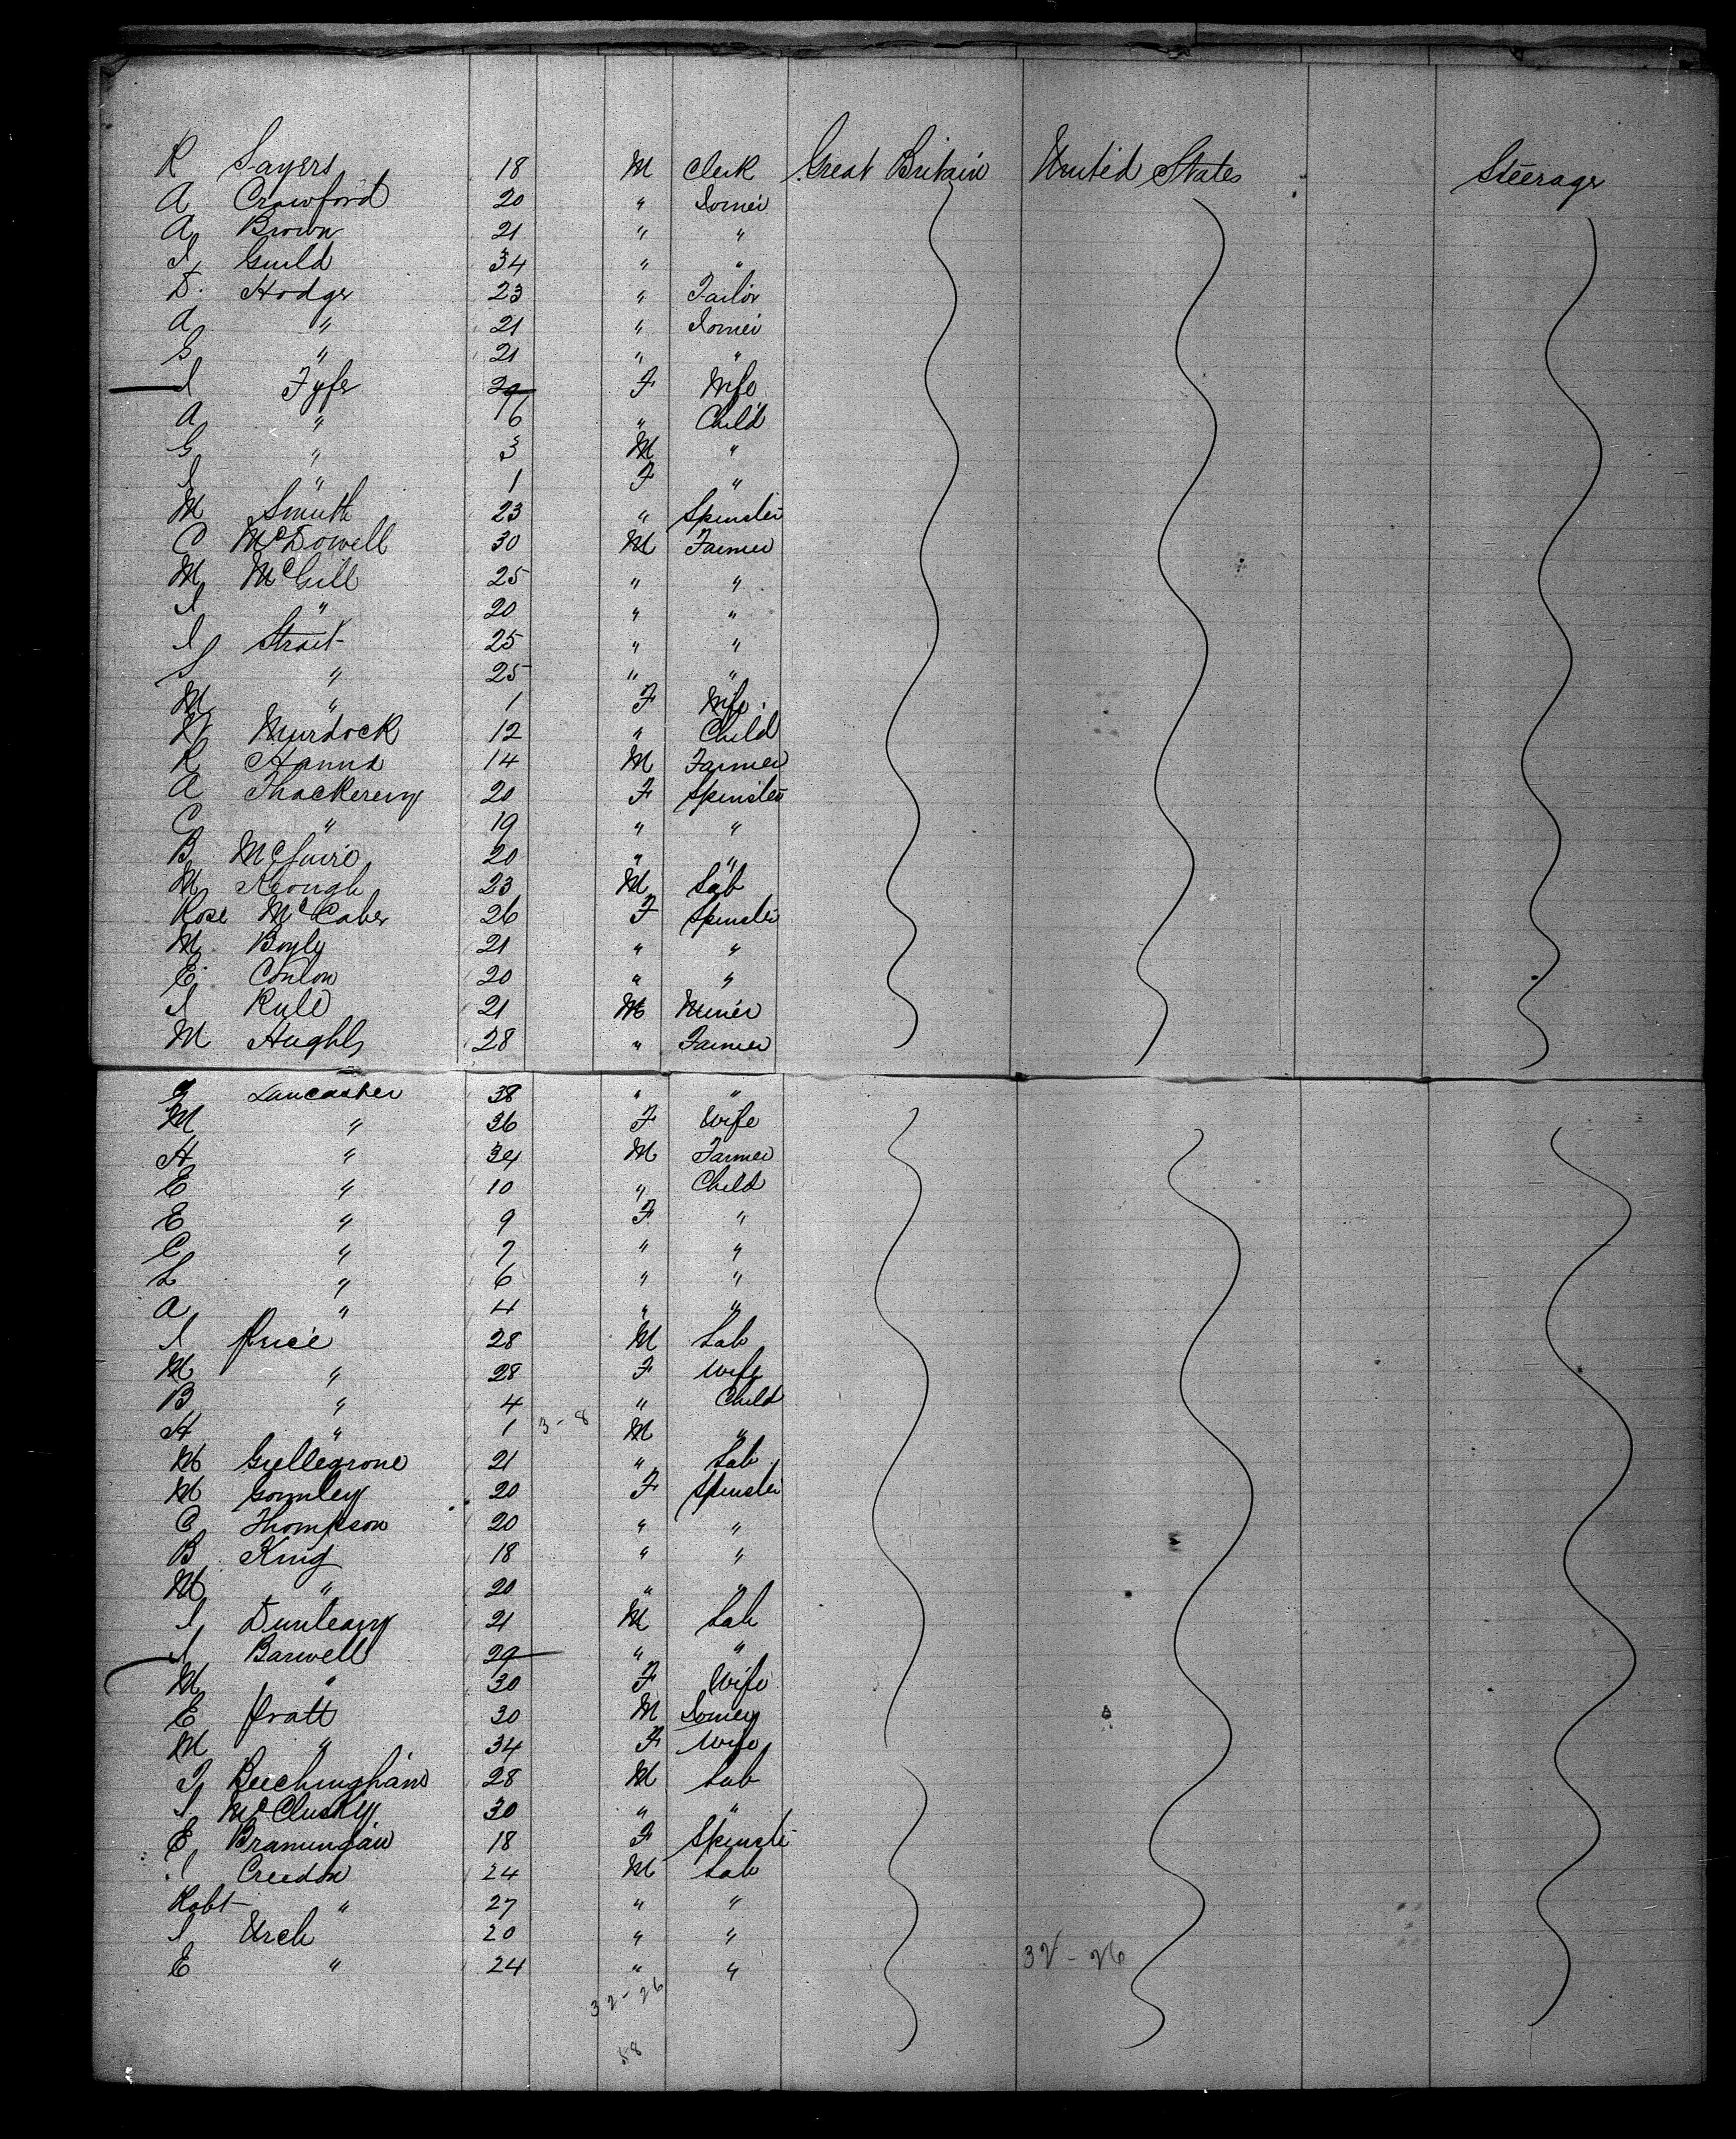 R Sayers 18 M Clerk Great Britain United States Steerage
A Crawford 20 " Joiner
A Brown 21 " "
J Guild 34 " "
D. Hodge 23 " Tailor
A " 21 " Joiner
G " 21 " "
J Fyfe 29 F Wife
A " 6 " Child
G " 3 M "
J " 1 F "
M Smith 23 " Spinster
C McDowell 30 M Farmer
M McGill 25 " "
J " 20 " "
J Strait 25 " "
S " 25 " "
M " 1 F Wife
Murdock 12 " Child
R Hanna 14 M Farmer
A Thackerey 20 F Spinster
C " 19 " "
B McGuire 20 " "
M Keough 23 M Lab
Rose McCabe 26 F Spinster
M Boyle 21 " "
E Conlon 20 " "
J Rule 21 M Miner
M Hughes 28 " Farmer
Lancaster 38 " "
M " 36 F Wife
H " 34 M Farmer
E " 10 " Child
E " 9 F "
C " 7 " "
L " 6 " "
A " 4 " "
J Price 28 M Lab
M " 28 F Wife
B " 4 " Child
H " 1 3-8 M "
M 21 " Lab
M Gormley 20 F Spinster
C Thompson 20 " "
B King 18 " "
M " 20 " "
J Dunleavy 21 M Lab
J Barwell 29 " "
M " 30 F Wife
E Pratt 30 M
M " 34 F Wife
Beechingham 28 M Lab
J McCluskey 30 " "
E Brannigan 18 F Spinster
J Creedon 24 M Lab
Robt " 27 " "
J Urch 20 " "
E " 24 " " 32-26
32-26
58